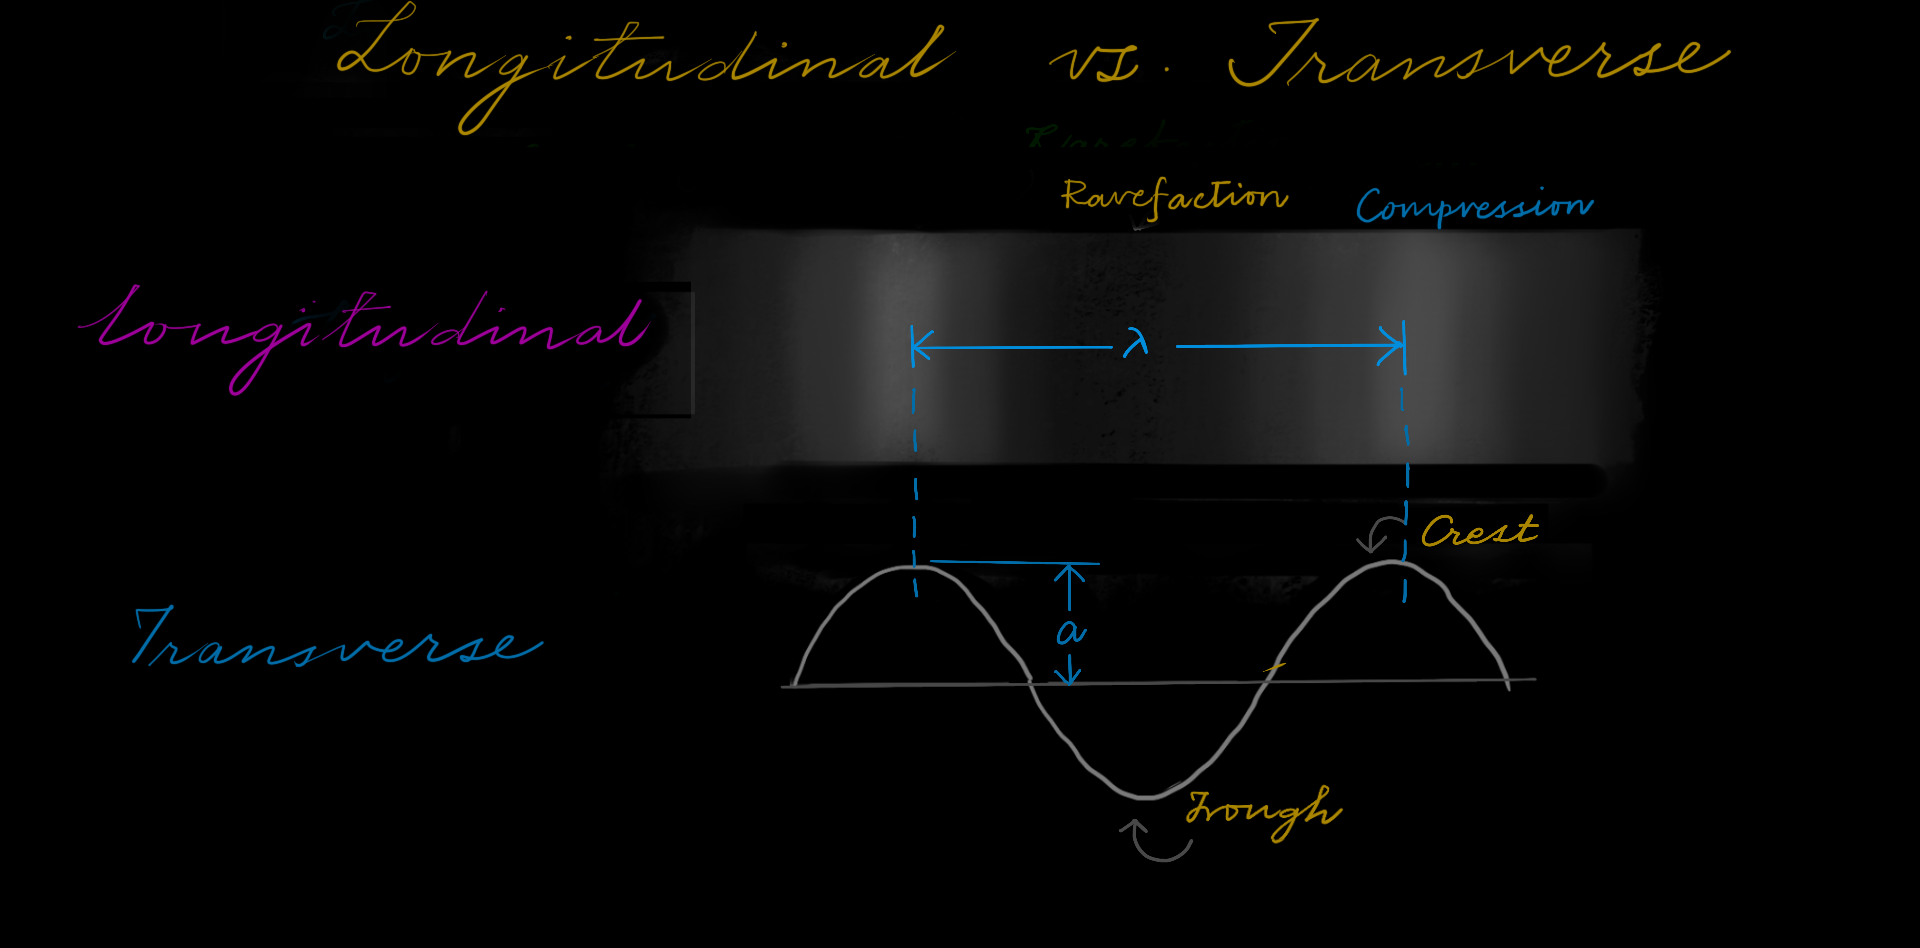 Longitudinal vs. Transverse
Rarefaction
Compression
Longitudinal
λ
Crest
a
Transverse
Trough